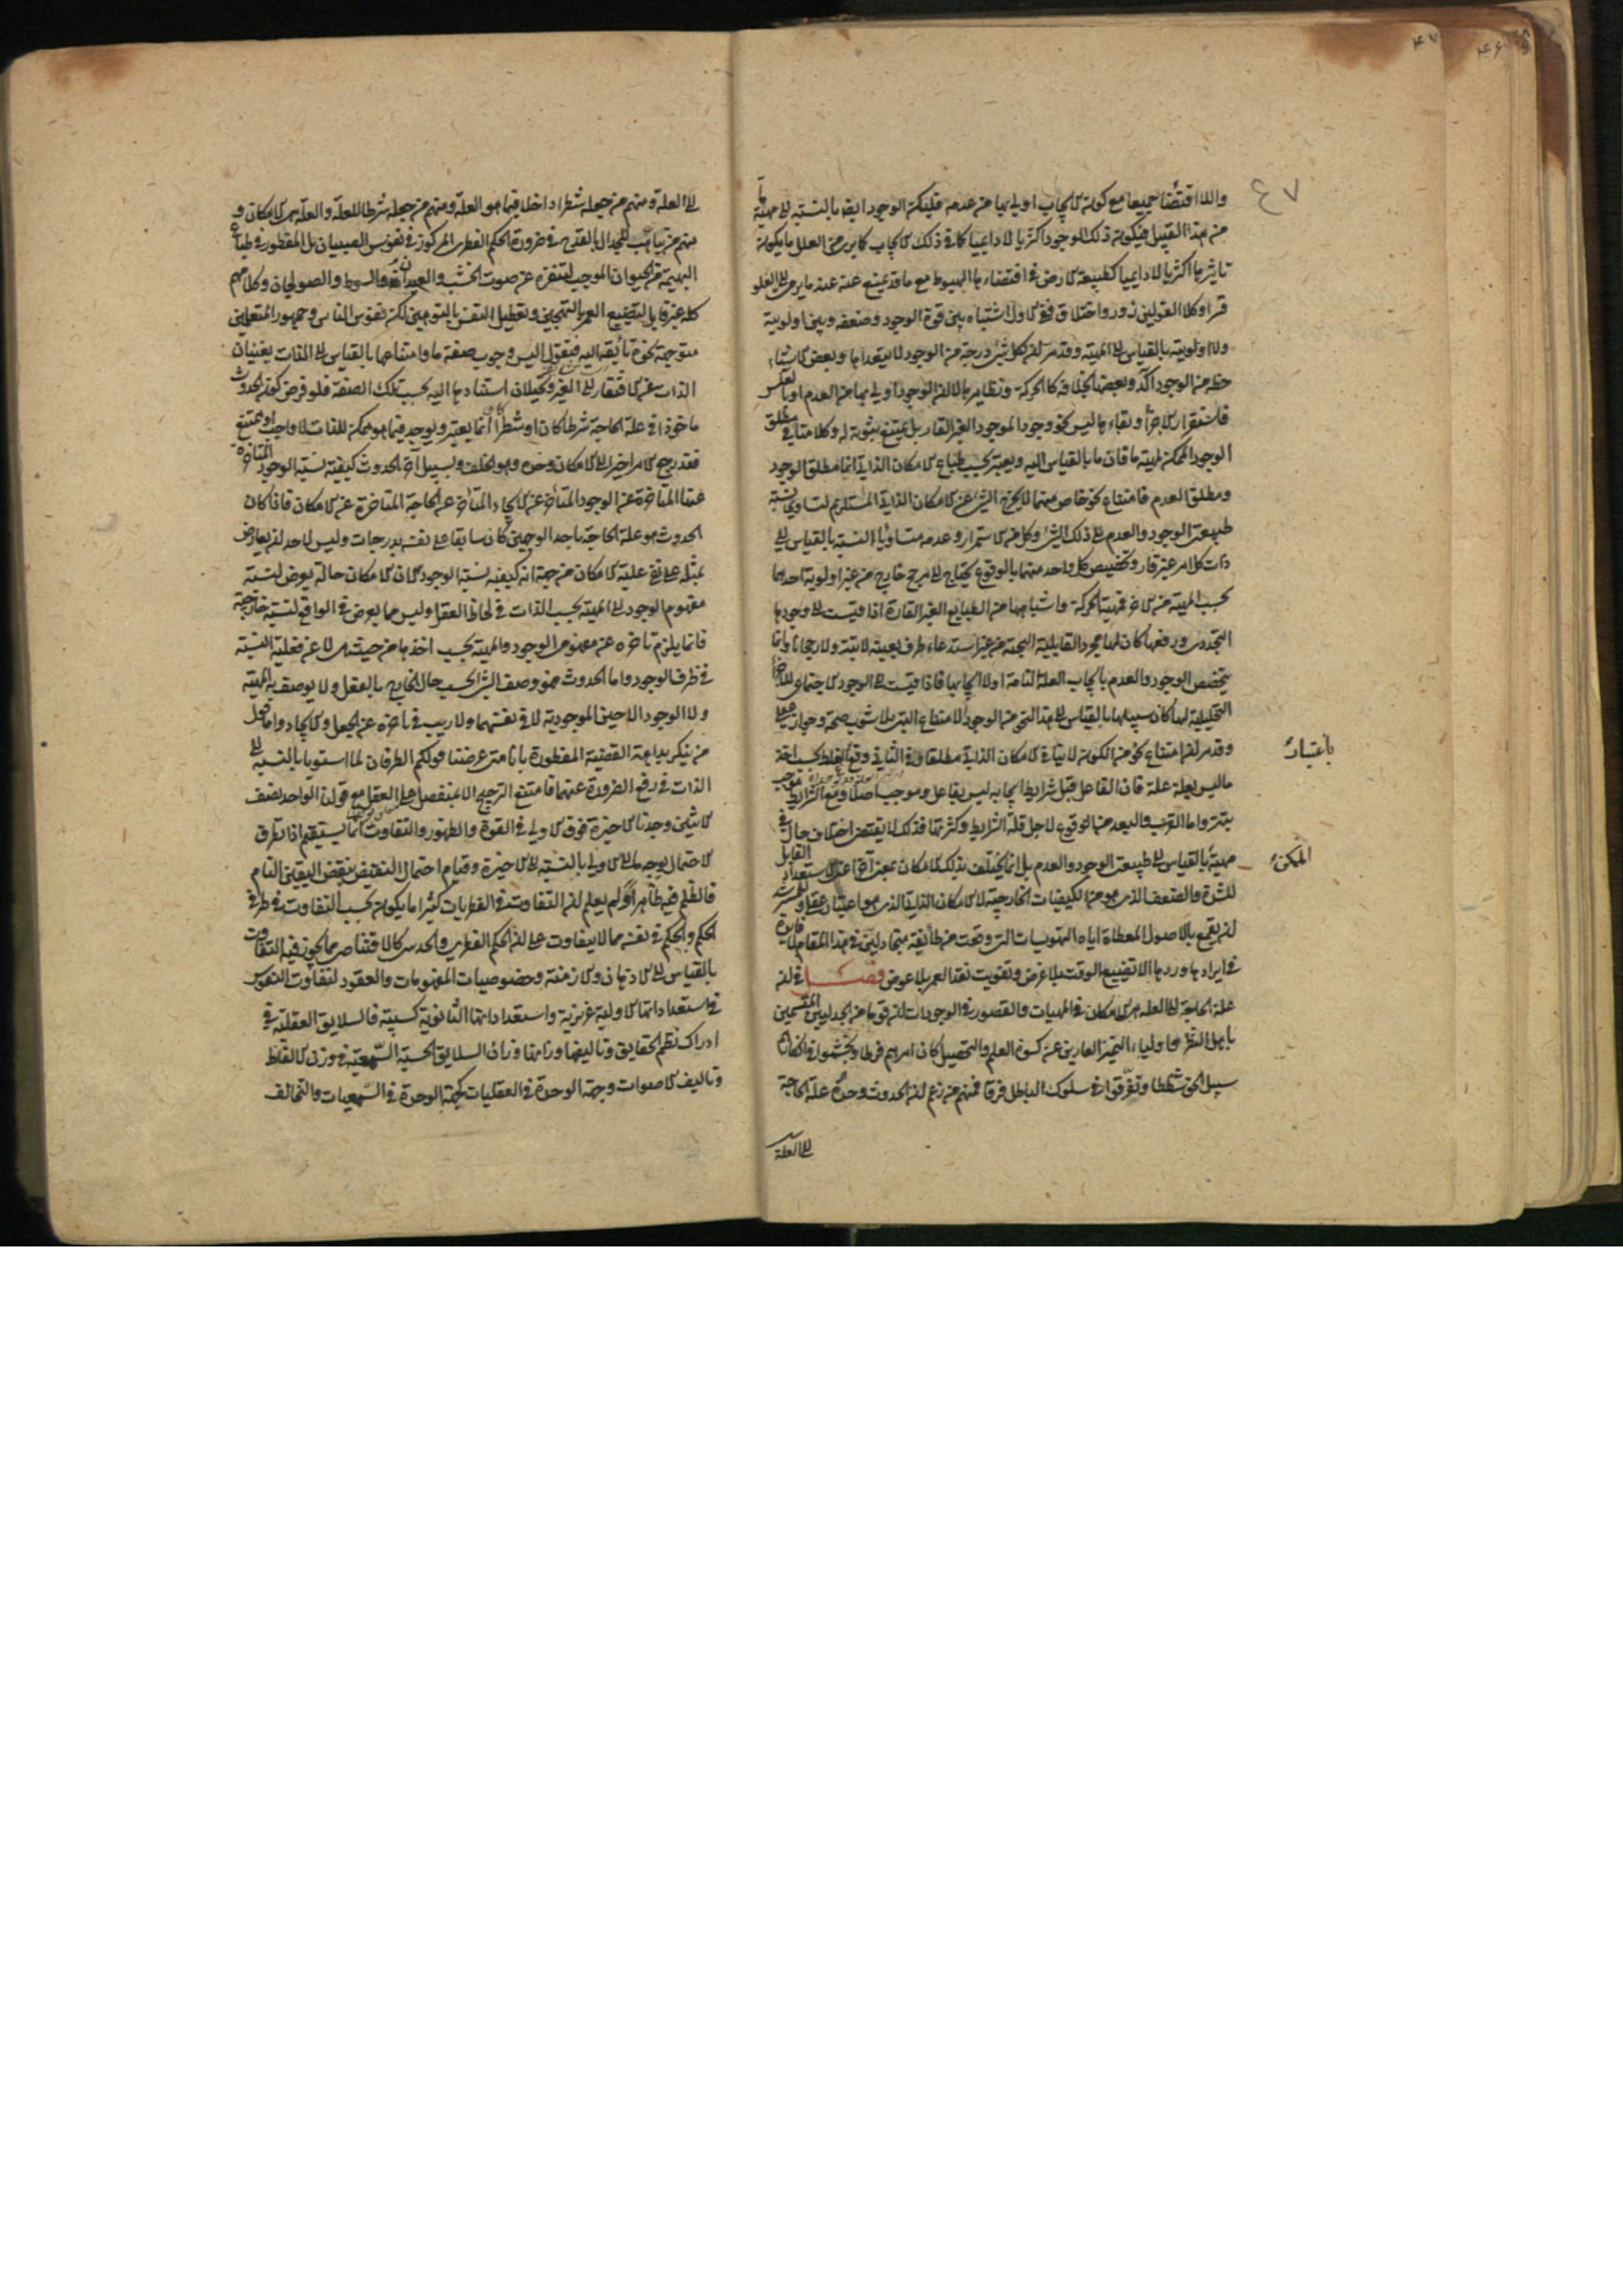 ۴۷
۴۶
۴۷
واللااقتضا جميعا مع كونه الايجاب اولى بها من عدمه فليكن الوجود ايضا بالنسبة الى مهية ما
من هذا القبيل فيكون ذلك الوجود اكثريا لا دائميا كافي ذلك الايجاب كما يوجد من العلل ما يكون
تاثيرها اكثريا لا دايميا كطبيعة الارض في اقتضاءها الهبوط مع ما قد يمنع عنه عند ما يرمى الى العلو
قسرا وكلا القولين زور واختلاق ففي الاول اشتباه بين قوة الوجود وضعفه وبين اولوية
ولا اولوية بالقياس الى المهية وقد مر ان لكل شي درجة من الوجود لا يتعداها وبعض الاشياء
حظه من الوجود آكد وبعضها بخلافه كالحركة ونظايرها لا ان الوجود اولى بها من العدم او بالعكس
فاستقرار الاجزاء وبقاءها ليس نحو وجود الموجود الغير القار بل يمتنع ثبوته له وكلامنا في مطلق
الوجود الممكن لمهية ما فان ما بالقياس اليه ويعتبر بحسب طباع الامكان الذاتي انما مطلق الوجود
ومطلق العدم فامتناع نحو خاص منهما لا يخرج الشي عن الامكان الذاتي المستلزم لتساوي نسبة
طبيعتى الوجود والعدم الى ذلك الشي وكل من الاستمرار وعدمه متساويا النسبة بالقياس الى
ذات كل امر غير قار وتخصيص كل واحد منهما بالوقوع يحتاج الى مرجح خارج من غير اولوية احدهما
بحسب المهية من الاخر فمهية الحركة واشباهها من الطبايع الغير القارة اذا قيست الى وجودها
التجددي ورفعه كان لها مجرد القابلية البحتة من غير استدعاء طرف بعينه لا بتة ولا رجحانا وانما
يتخصص الوجود والعدم بايجاب العلة التامة اولا ايجابها فاذا قيست الى الوجود الاجتماعي للاجزاء
التحليلية لها كان سبيلها بالقياس الى هذا النحو من الوجود الامتناع البتي بلا شوب صحة وجواز عقلي
وقد مر ان امتناع نحو من الكون لا ينافي الامكان الذاتي مطلقا وفي الثاني وقع الغلط بحسب اخذ
ما ليس بعلة علة فان الفاعل قبل شرايط ايجابه ليس بفاعل وموجب اصلا ومع الشرايط موجب
بتة واما القرب والبعد من الوقوع لاجل قلة الشرايط وكثرتها فذلك لا يقتضى اختلاف حال في
مهية بالقياس الى طبيعتى الوجود والعدم بل انما يختلف بذلك الامكان بمعنى آخر اعنى الاستعداد القابل
للشدة والضعف الذى هو من الكيفيات الخارجية لا الامكان الذاتي الذى هو اعتبار عقلي
في ايرادها وردها الا تضييع الوقت بلا غرض وتفويت نقد العمر بلا عوض فصــل في ان
علة الحاجة الى العلة هى الامكان في المهيات والقصور في الوجودات ان قوما من الجدليين المتسمين
باهل النظر واولياء التميز العارين عن كسوة العلم والتحصيل كان امرهم فرطا وتجشموا في انكارهم
سبيل الحق شططا وتفرقوا في سلوك الباطل فرقا فمنهم من زعم ان الحدوث وحده علة الحاجة
الى العلة
باعتبار
الممكن
الى العلة ومنهم من جعله شطرا داخلا فيما هو العلة ومنهم من جعله شرطا للعلة والعلة هى الامكان و
منهم من يتاهب للجدال بالقدح في ضرورة الحكم الفطرى المركوز في نفوس الصبيان بل المفطور في طباع
البهيمة من الحيوان الموجب لتنفره عن صوت الخشب والعيدان والسوط والصولجان وكلامهم
كله غير قابل لتضييع العمر بالتهجين وتعطيل النفس بالتوهين لكن نفوس الناس وجمهور المتعلمين
متوجهة نحوه تائقة اليه فنقول اليس وجوب صفة ما وامتناعها بالقياس الى الذات يغنيان
الذات عن الافتقار الى الغير ويحيلان استنادها اليه بحسب تلك الصفة فلو فرض كون الحدوث
ماخوذا في علة الحاجة شرطا كان او شطرا كان انما يعتبر ويوجد فيما هو ممكن للذات لا واجب او ممتنع
فقد رجع الامر اخيرا الى الامكان وحده وهو الخلف وبسبيل آخر الحدوث كيفية نسبة الوجود المتاخرة
عنها المتاخرة عن الوجود المتأخر عن الايجاد المتأخر عن الحاجة المتاخرة عن الامكان فاذا كان
الحدوث هو علة الحاجة باحد الوجهين كان سابقا على نفسه بدرجات وليس لاحد ان يعارض
بمثله على نفي علية الامكان من جهة انه كيفية نسبة الوجود لان الامكان حالة يعرض لنسبة
مفهوم الوجود الى المهية بحسب الذات في لحاظ العقل وليس مما يعرض في الواقع لنسبة خارجية
فانما يلزم تاخره عن مفهومى الوجود والمهية بحسب اخذها من حيث هى لا عن فعلية النسبة
في ظرف الوجود واما الحدوث فهو وصف الشي بحسب حال الخارج بالفعل ولا يوصف به المهية
ولا الوجود الا حين الموجودية لا في نفسهما ولا ريب في تاخره عن الجعل والايجاد واما قول
من ينكر بداهة القضية المفطورة بانا متى عرضنا قولكم الطرفان لما استويا بالنسبة الى
الذات في رفع الضرورة عنهما فامتنع الترجيح الا بمنفصل على العقل مع قولنا الواحد نصف
الاثنين وجدنا الاخيرة فوق الاولى في القوة والظهور والتفاوت انما يستقيم اذا تطرق
الاحتمال بوجه ما الى الاولى بالنسبة الى الاخيرة وقيام احتمال النقيض ينقض اليقين التام
فالظلم فيه ظاهر اولم يعلم ان التفاوت في الفطريات كثيرا ما يكون بحسب التفاوت في طرفى
الحكم والحكم في نفسه مما لا يتفاوت على ان الحكم الفطرى والحدسى كالاقتناصى مما يجوز فيه التفاوت
بالقياس الى الاذهان والازمنة وخصوصيات المفهومات والعقود لتفاوت النفوس
في استعداداتها الاولية غريزية واستعداداتها الثانوية كسبية فالسلايق العقلية في
ادراك نظم الحقايق وتاليفها وزانها وزان السلايق الحسية السمعية في وزن الالفاظ
وتاليف الاصوات وجهة الوحدة في العقليات كجهة الوحدة في السمعيات والتخالف